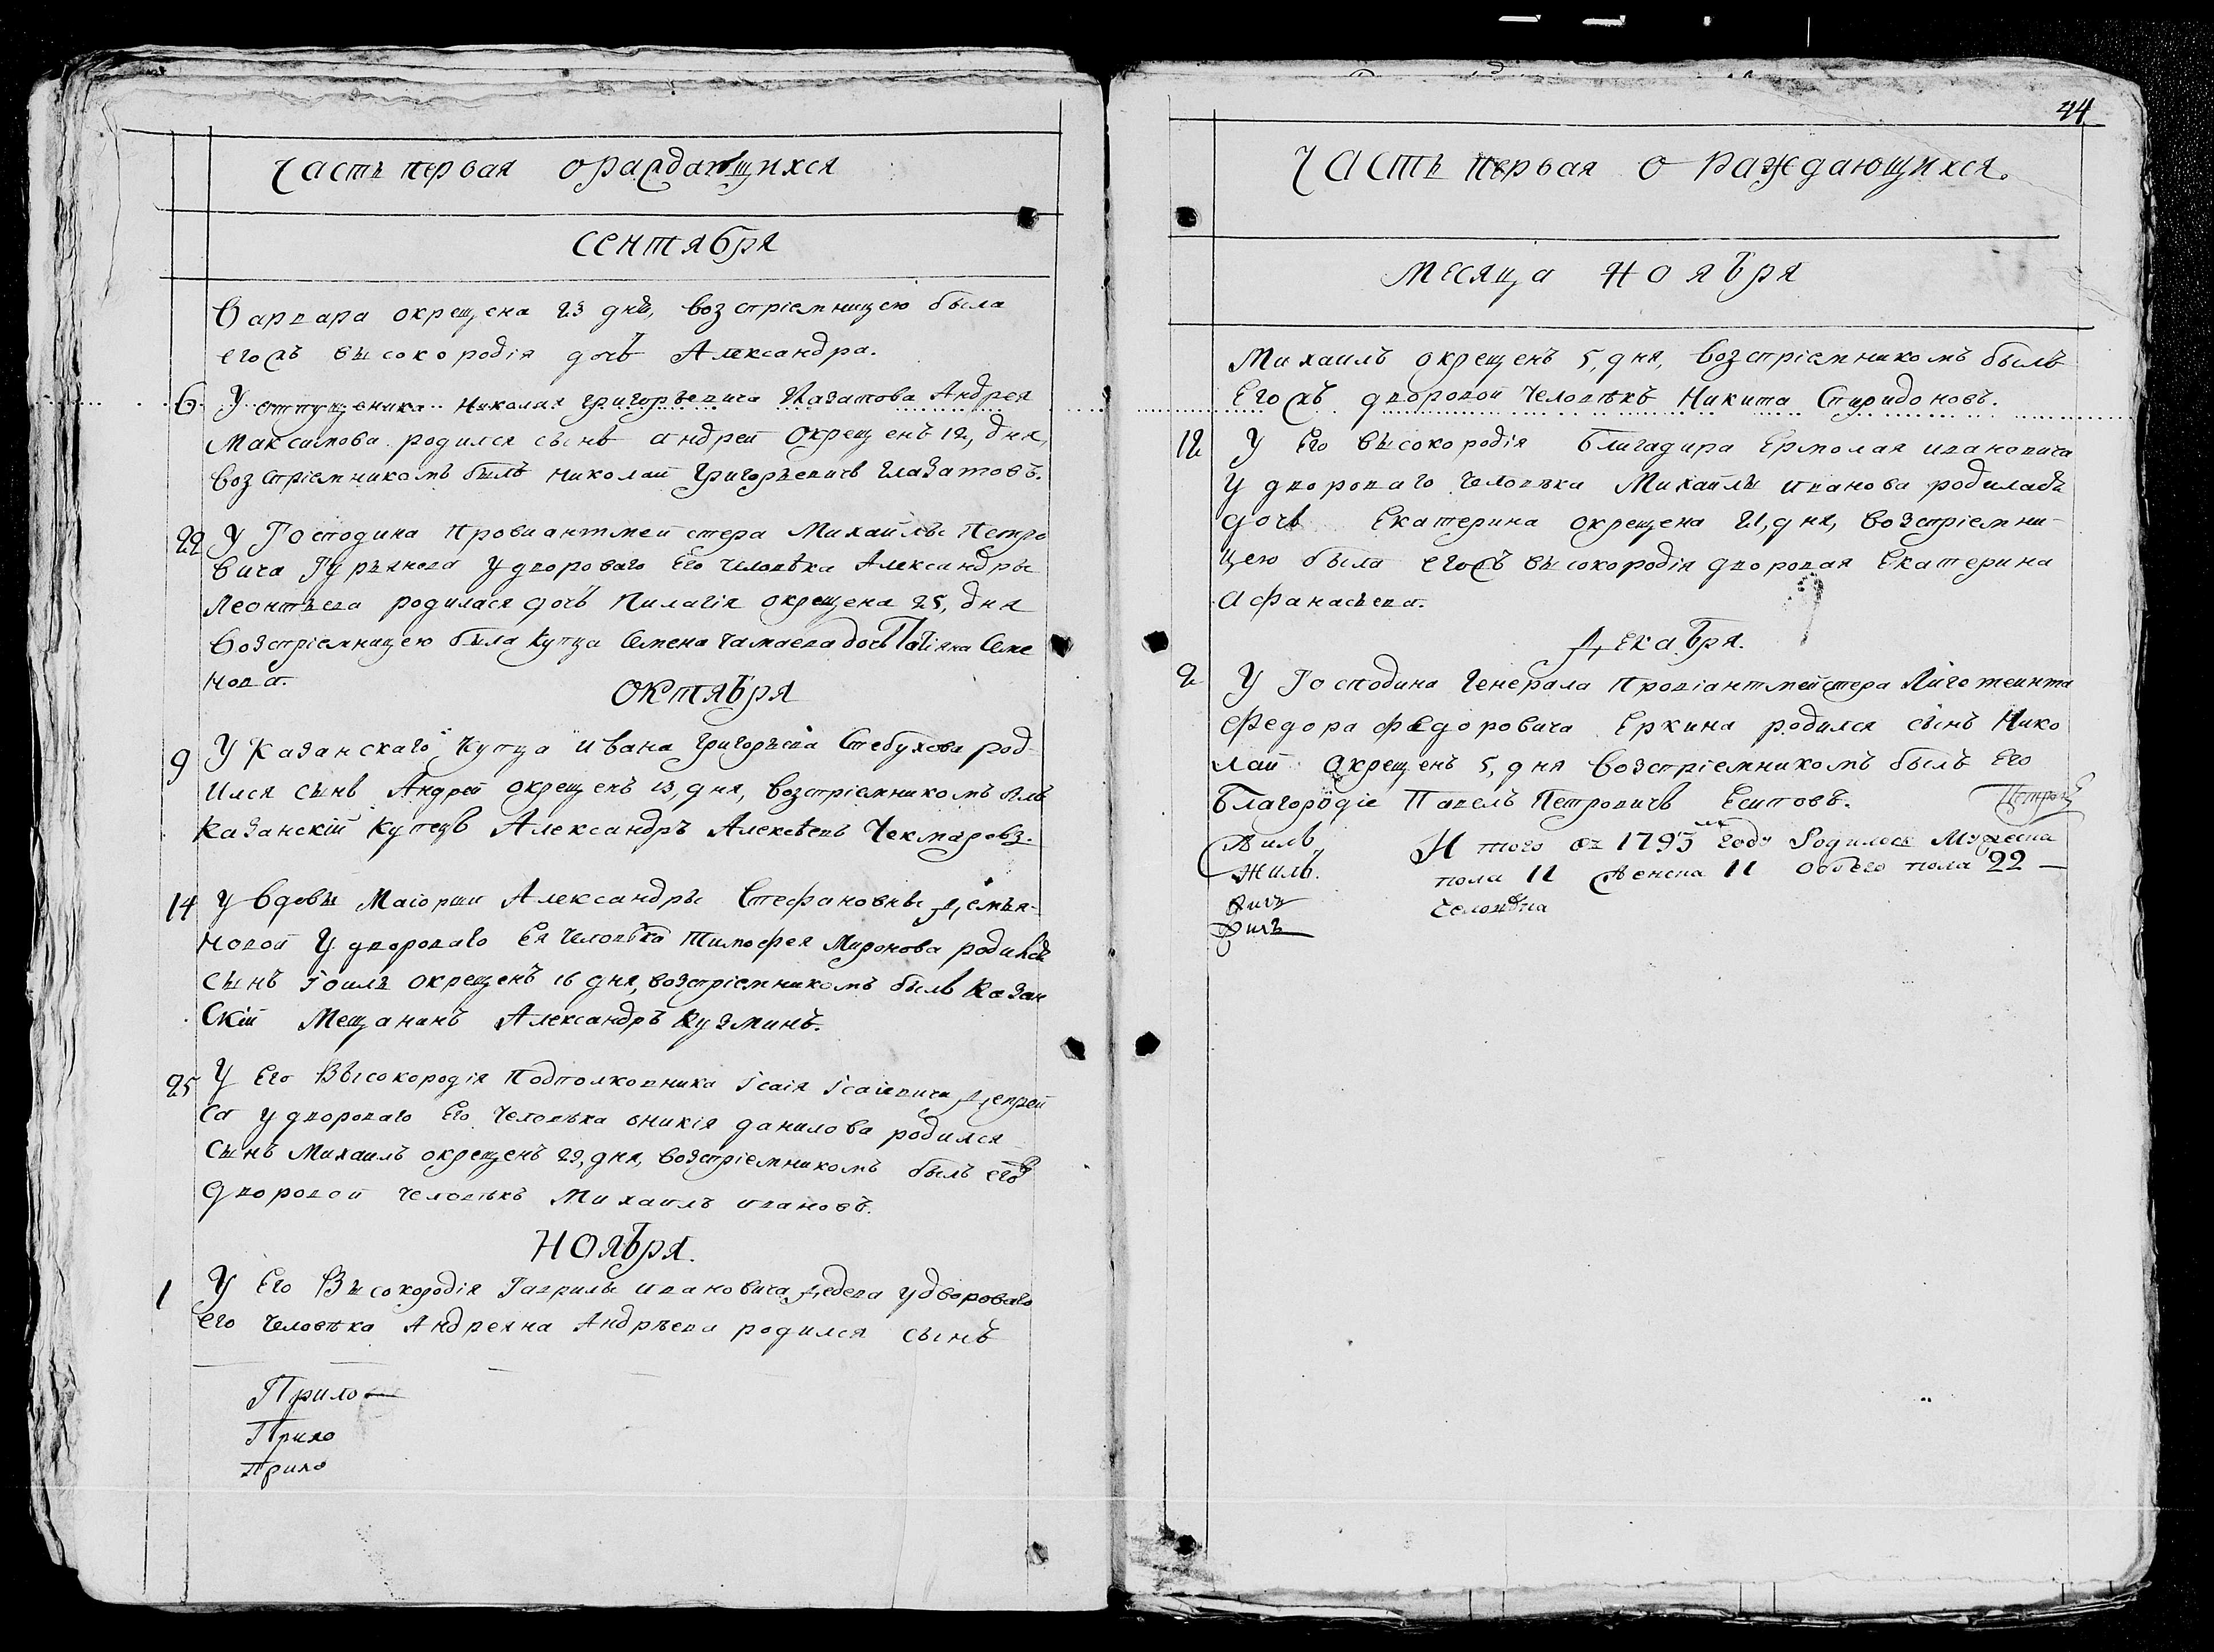 Часть первая ораждающихся
Сентября
Варвара окрещена 23 дня, возпріемницею была
егожъ высокородія дочь Александра.
6. У отпущеника Николая Григорьевича Глазатова Андрея
Максимова родился сынъ андрей Окрещенъ 12, дня,
возпріемникомъ былъ николай Григорьевичь Глазатовъ.
22 У Господина Провиантмейстера Михайлы Петро
вича Гурьянова у дворового Его человѣка Александры
Леонтьева родилася дочь Пилагія окрещена 25, дня
Возпріемницею была купца Семена Чамаева дочь Татіяна Семе
нова.
Октября
9 У Казанскаго купца Ивана Григорьева Стебухова род
ился сынъ Андрей окрещенъ 13, дня, возпріемникомъ былъ
казанскій купецъ Александръ Алексѣевъ Чекмаревъ.
14 У вдовы Маіорши Александры Стефановны Демья-
новой У двороваго Ея человѣка Тимофея Миронова родился
сынъ Іоиль окрещенъ 16 дня, возпріемникомъ былъ Казан
скій Мещанинъ Александръ Кузминъ.
25 У Его Высокородія Подполковника Ісаія Ісаіевича
са у двороваго Его человѣка оникія данилова родился
Сынъ Михаилъ окрещенъ 29, дня, возпріемникомъ былъ егожъ
дворовой человѣкъ Михаилъ ивановъ.
Ноября.
1 У Его Высокородія Гаврилы ивановича Дедева у двороваго
его человѣка Андреяна Андрѣева родился сынъ
Прило
Прило
Прило
44
Часть первая о раждающихся.
Месяца Ноября
Михаилъ окрещенъ 5, дня, возпріемникомъ былъ
Егожъ дворовой человѣкъ Никита Спиридоновъ.
12 У Его высокородія Блигадира Ермолая ивановича
У двороваго человѣка Михайлы иванова родилась
дочь Екатерина окрещена 21, дня, возпріемни-
цею была егожъ высокородія дворовая Екатерина
Афанасьева.
Декабря.
2 У Господина Генерала Провіантмейстера Лиготеинта
Федора Федоровича Еркина родился сынъ Нико
лай Окрещенъ 5, дня возпріемникомъ былъ Его
Благородіе Павелъ Петровичь Еситовъ.
И того въ 1795 м году Родилось Мужеска
пола 11 Женска 11 Обоего пола 22 —
человѣка